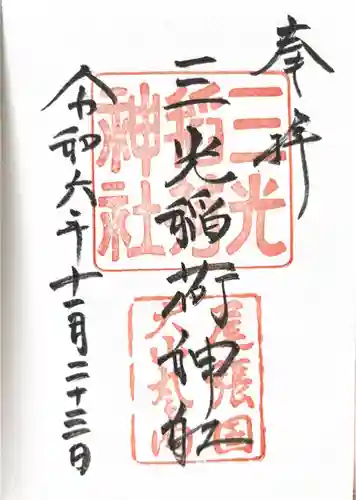 奉拝
三光稲荷神社
令和六年十一月二十三日
三光
稲荷
神社
尾張国
犬山丸之内